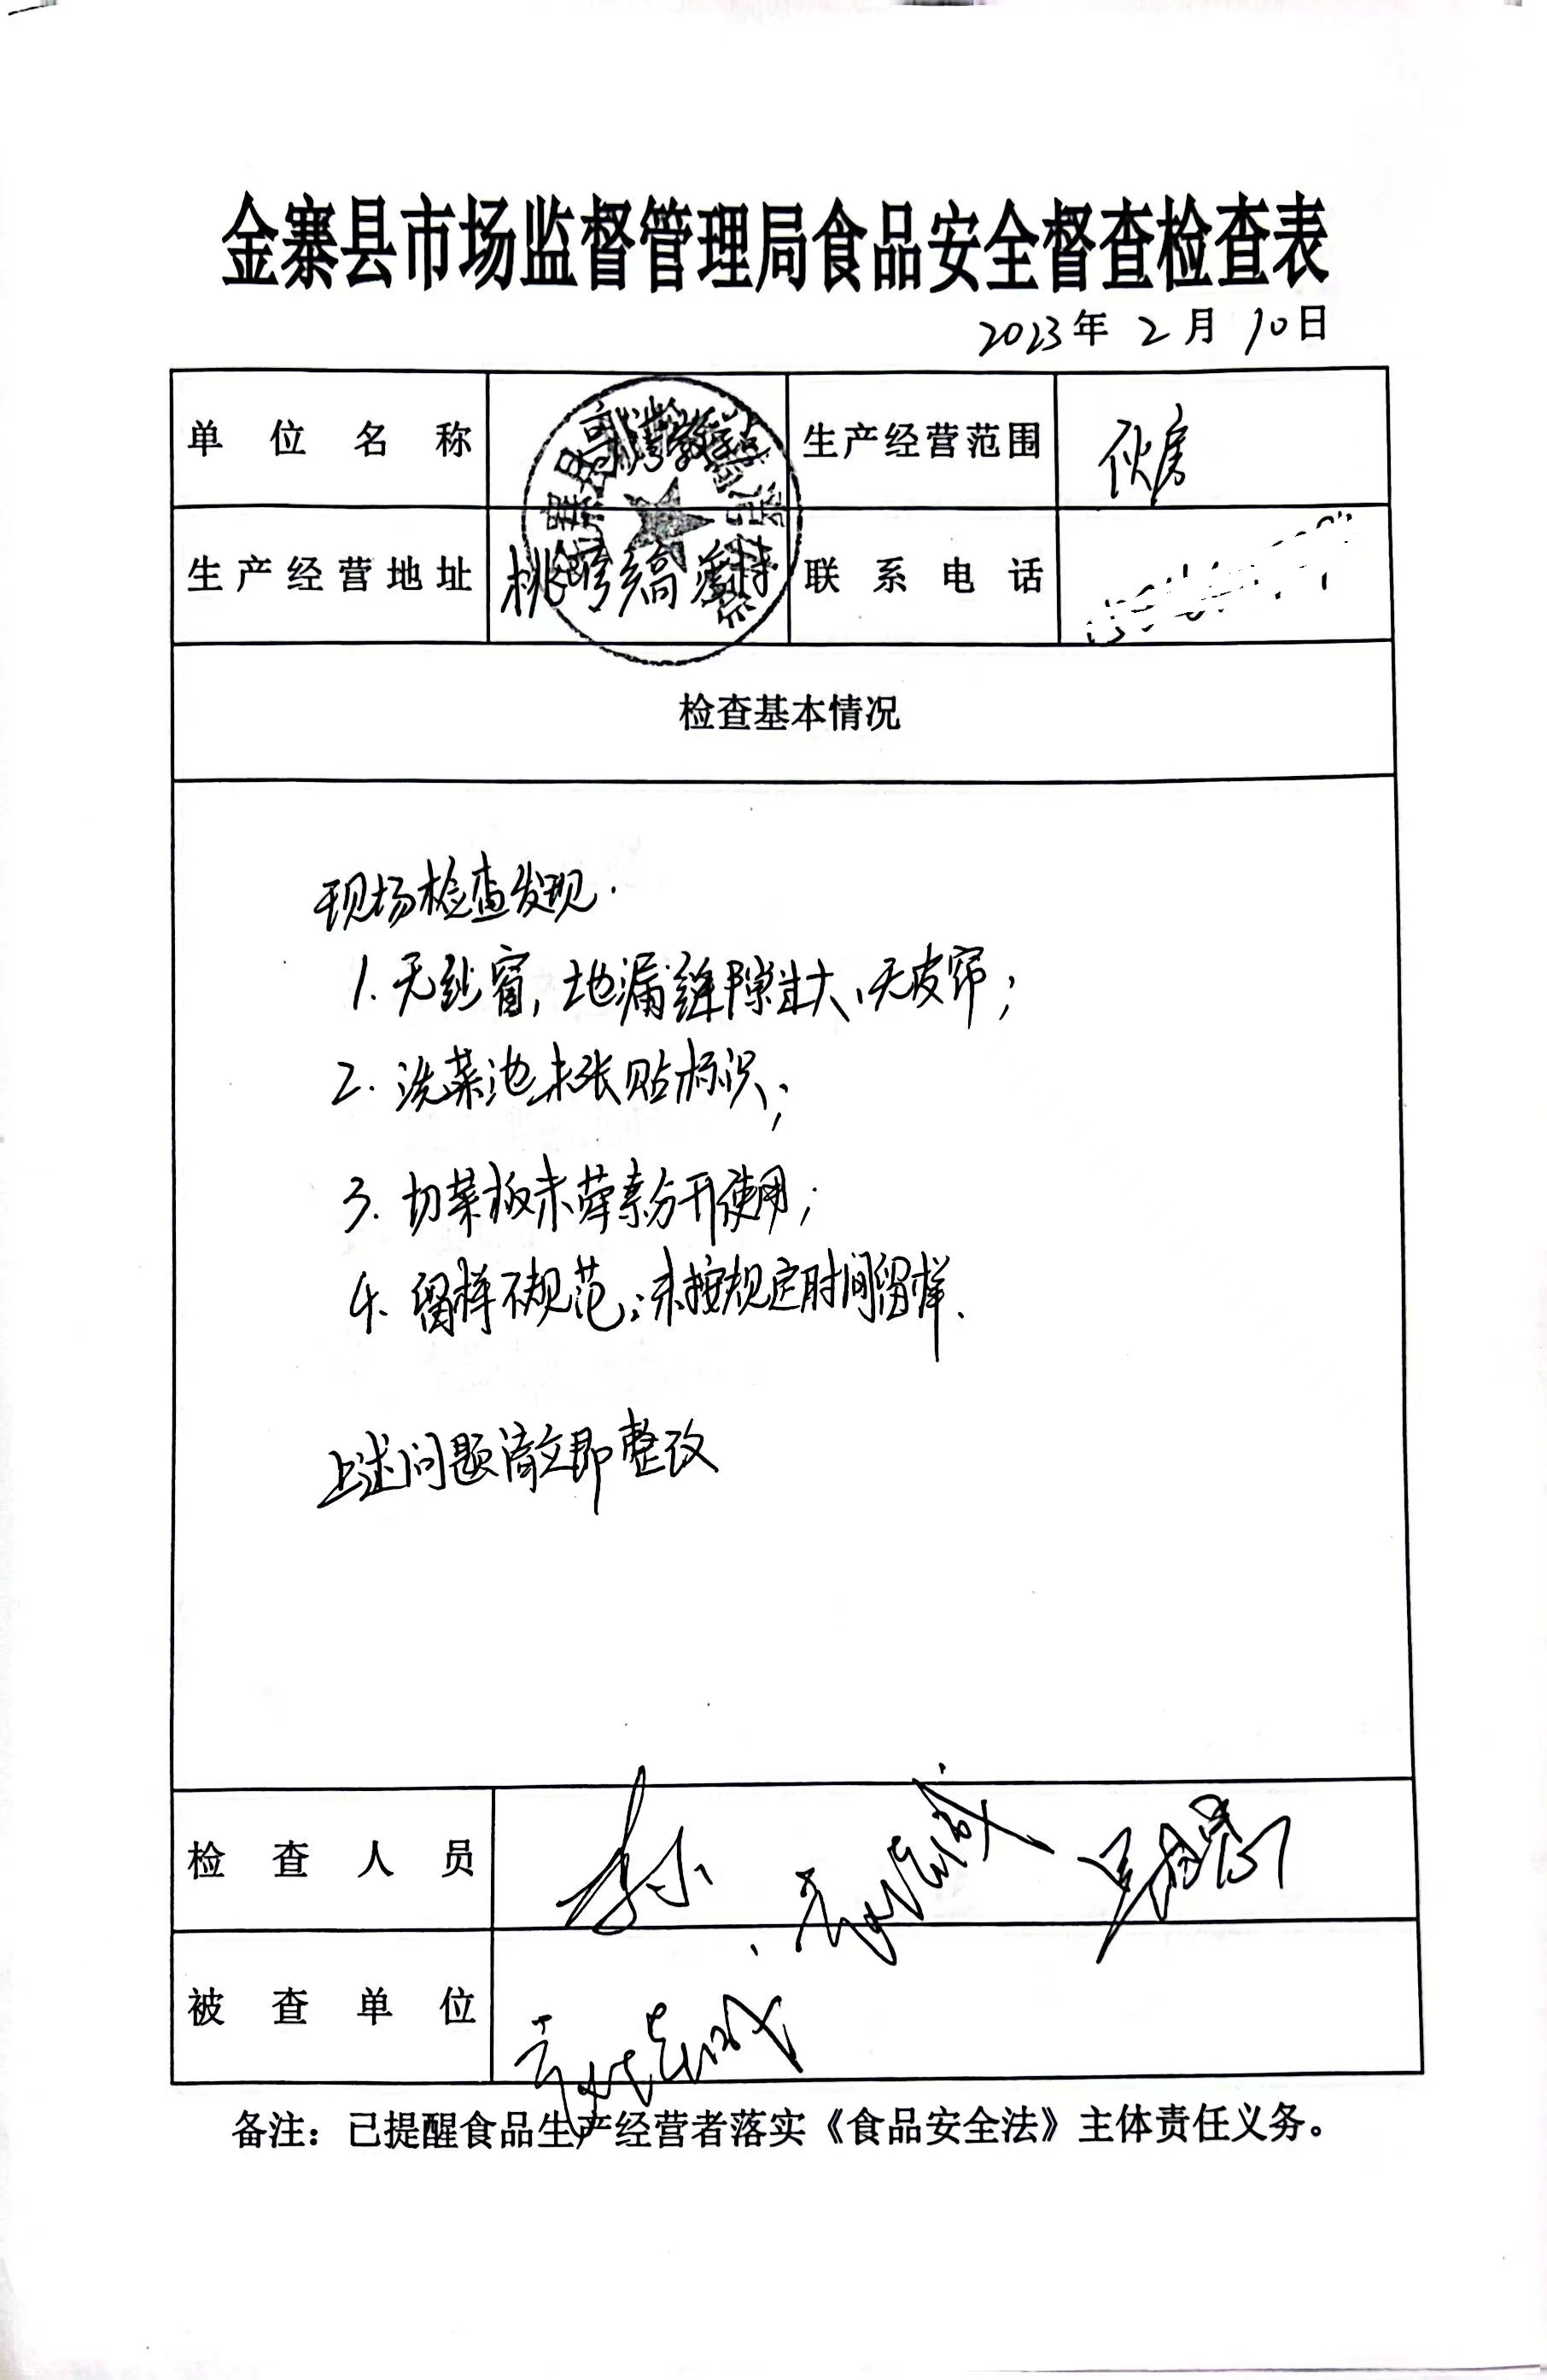 金寨县市场监督管理局食品安全督查检查表
2023年 2月 10日
单位名称
生产经营范围 伙房
生产经营地址 桃岭
联系电话
检查基本情况
现场检查发现.
1. 无纱窗, 地漏缝隙过大、无皮帘;
2. 洗菜池未张贴标识;
3. 切菜板未荤素分开使用;
4. 留样不规范:未按规定时间留样.
上述问题请立即整改
检查人员
被查单位
备注：已提醒食品生产经营者落实《食品安全法》主体责任义务。